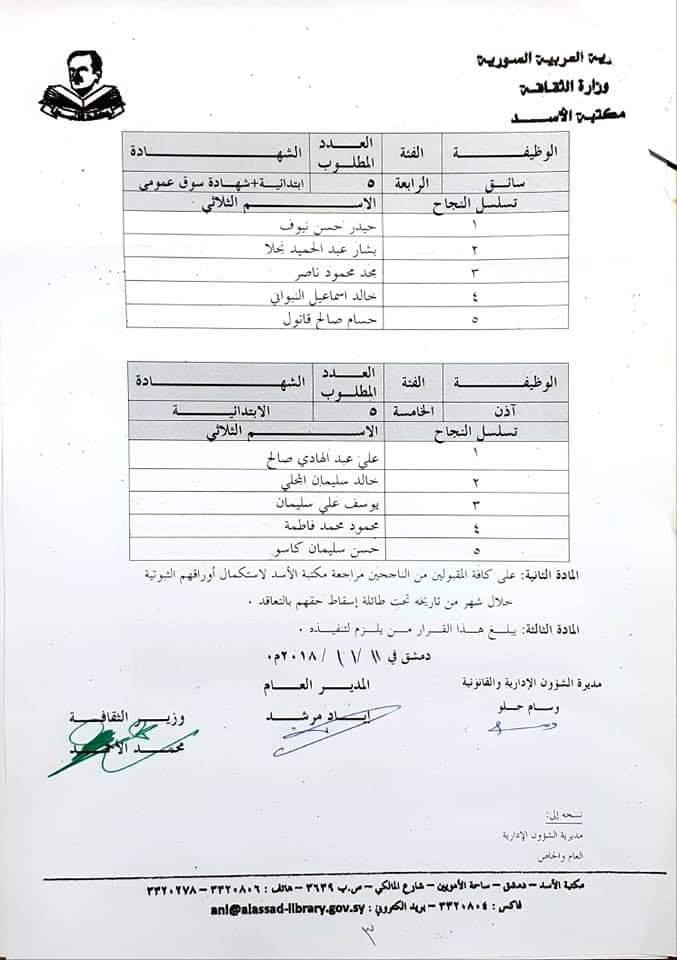 ـرية العربية السورية
وزارة الثقافـة
مكتبة الأســد
الوظيفــة الفئة العــدد المطلـوب الشهــادة
سائـق الرابعة ٥ ابتدائية+شهادة سوق عمومي
تسلسل النجاح الاســم الثلاثي
١ حيدر حسن نيوف
٢ بشار عبد الحميد نجلا
٣ مجد محمود ناصر
٤ خالد اسماعيل النبواني
٥ حسام صالح قانول
الوظيفــة الفئة العــدد المطلـوب الشهــادة
آذن الخامسة ٥ الابتدائيــة
تسلسل النجاح الاســم الثلاثي
١ علي عبد الهادي صالح
٢ خالد سليمان المحلي
٣ يوسف علي سليمان
٤ محمود محمد فاطمة
٥ حسن سليمان كاسو
المادة الثانية: على كافة المقبولين من الناجحين مراجعة مكتبة الأسد لاستكمال أوراقهم الثبوتية
خلال شهر من تاريخه تحت طائلة إسقاط حقهم بالتعاقد .
المادة الثالثة: يبلغ هـذا القرار مـن يلـزم لتنفيـذه .
دمشق في ١١/ ١١/ ٢٠١٨م٠
مديرة الشؤون الإدارية والقانونية
وسام حلو
المديـر العــام
إيـاد مرشـد
وزيـر الثقافـة
محمـد الأحمـد
نسخه إلى:
مديرية الشؤون الإدارية
العام والخاص
مكتبة الأسد – دمشق – ساحة الأمويين – شارع المالكي – ص.ب ٣٦٣٩ – هاتف : ٣٣٢٠٨٠٦ – ٣٣٢٠٢٧٨
فاكس : ٣٣٢٠٨٠٤ – بريد الكتروني : anl@alassad-library.gov.sy
٣